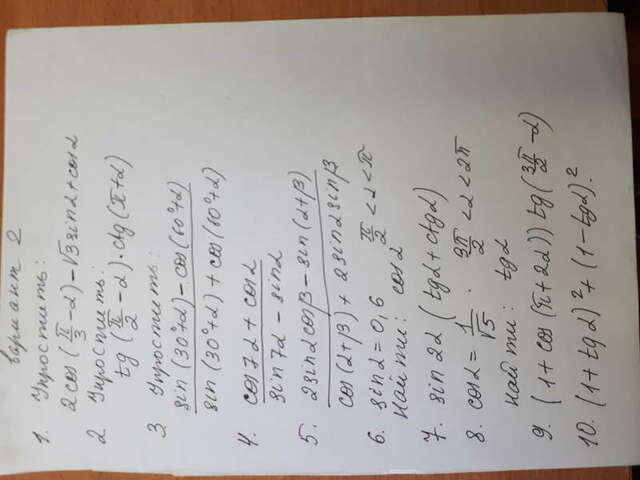 вариант 2
1. Упростить:
2cos(π/3-α)-√3sinα+cosα
2 Упростить:
tg(π/2-α)·ctg(π+α)
3. Упростить:
sin(30°+α)-cos(60°+α)
sin(30°+α)+cos(60°+α)
4. cos7α+cosα
sin7α-sinα
5. 2sinαcosβ-sin(α+β)
cos(α+β)+2sinαsinβ
6. sinα=0,6 π/2<α<π
Найти: cosα
7. sin2α(tgα+ctgα)
8. cosα=1/√5 · 3π/2<α<2π
Найти: tgα
9. (1+cos(π+2α))tg(3π/2-α)
10. (1+tgα)²+(1-tgα)².